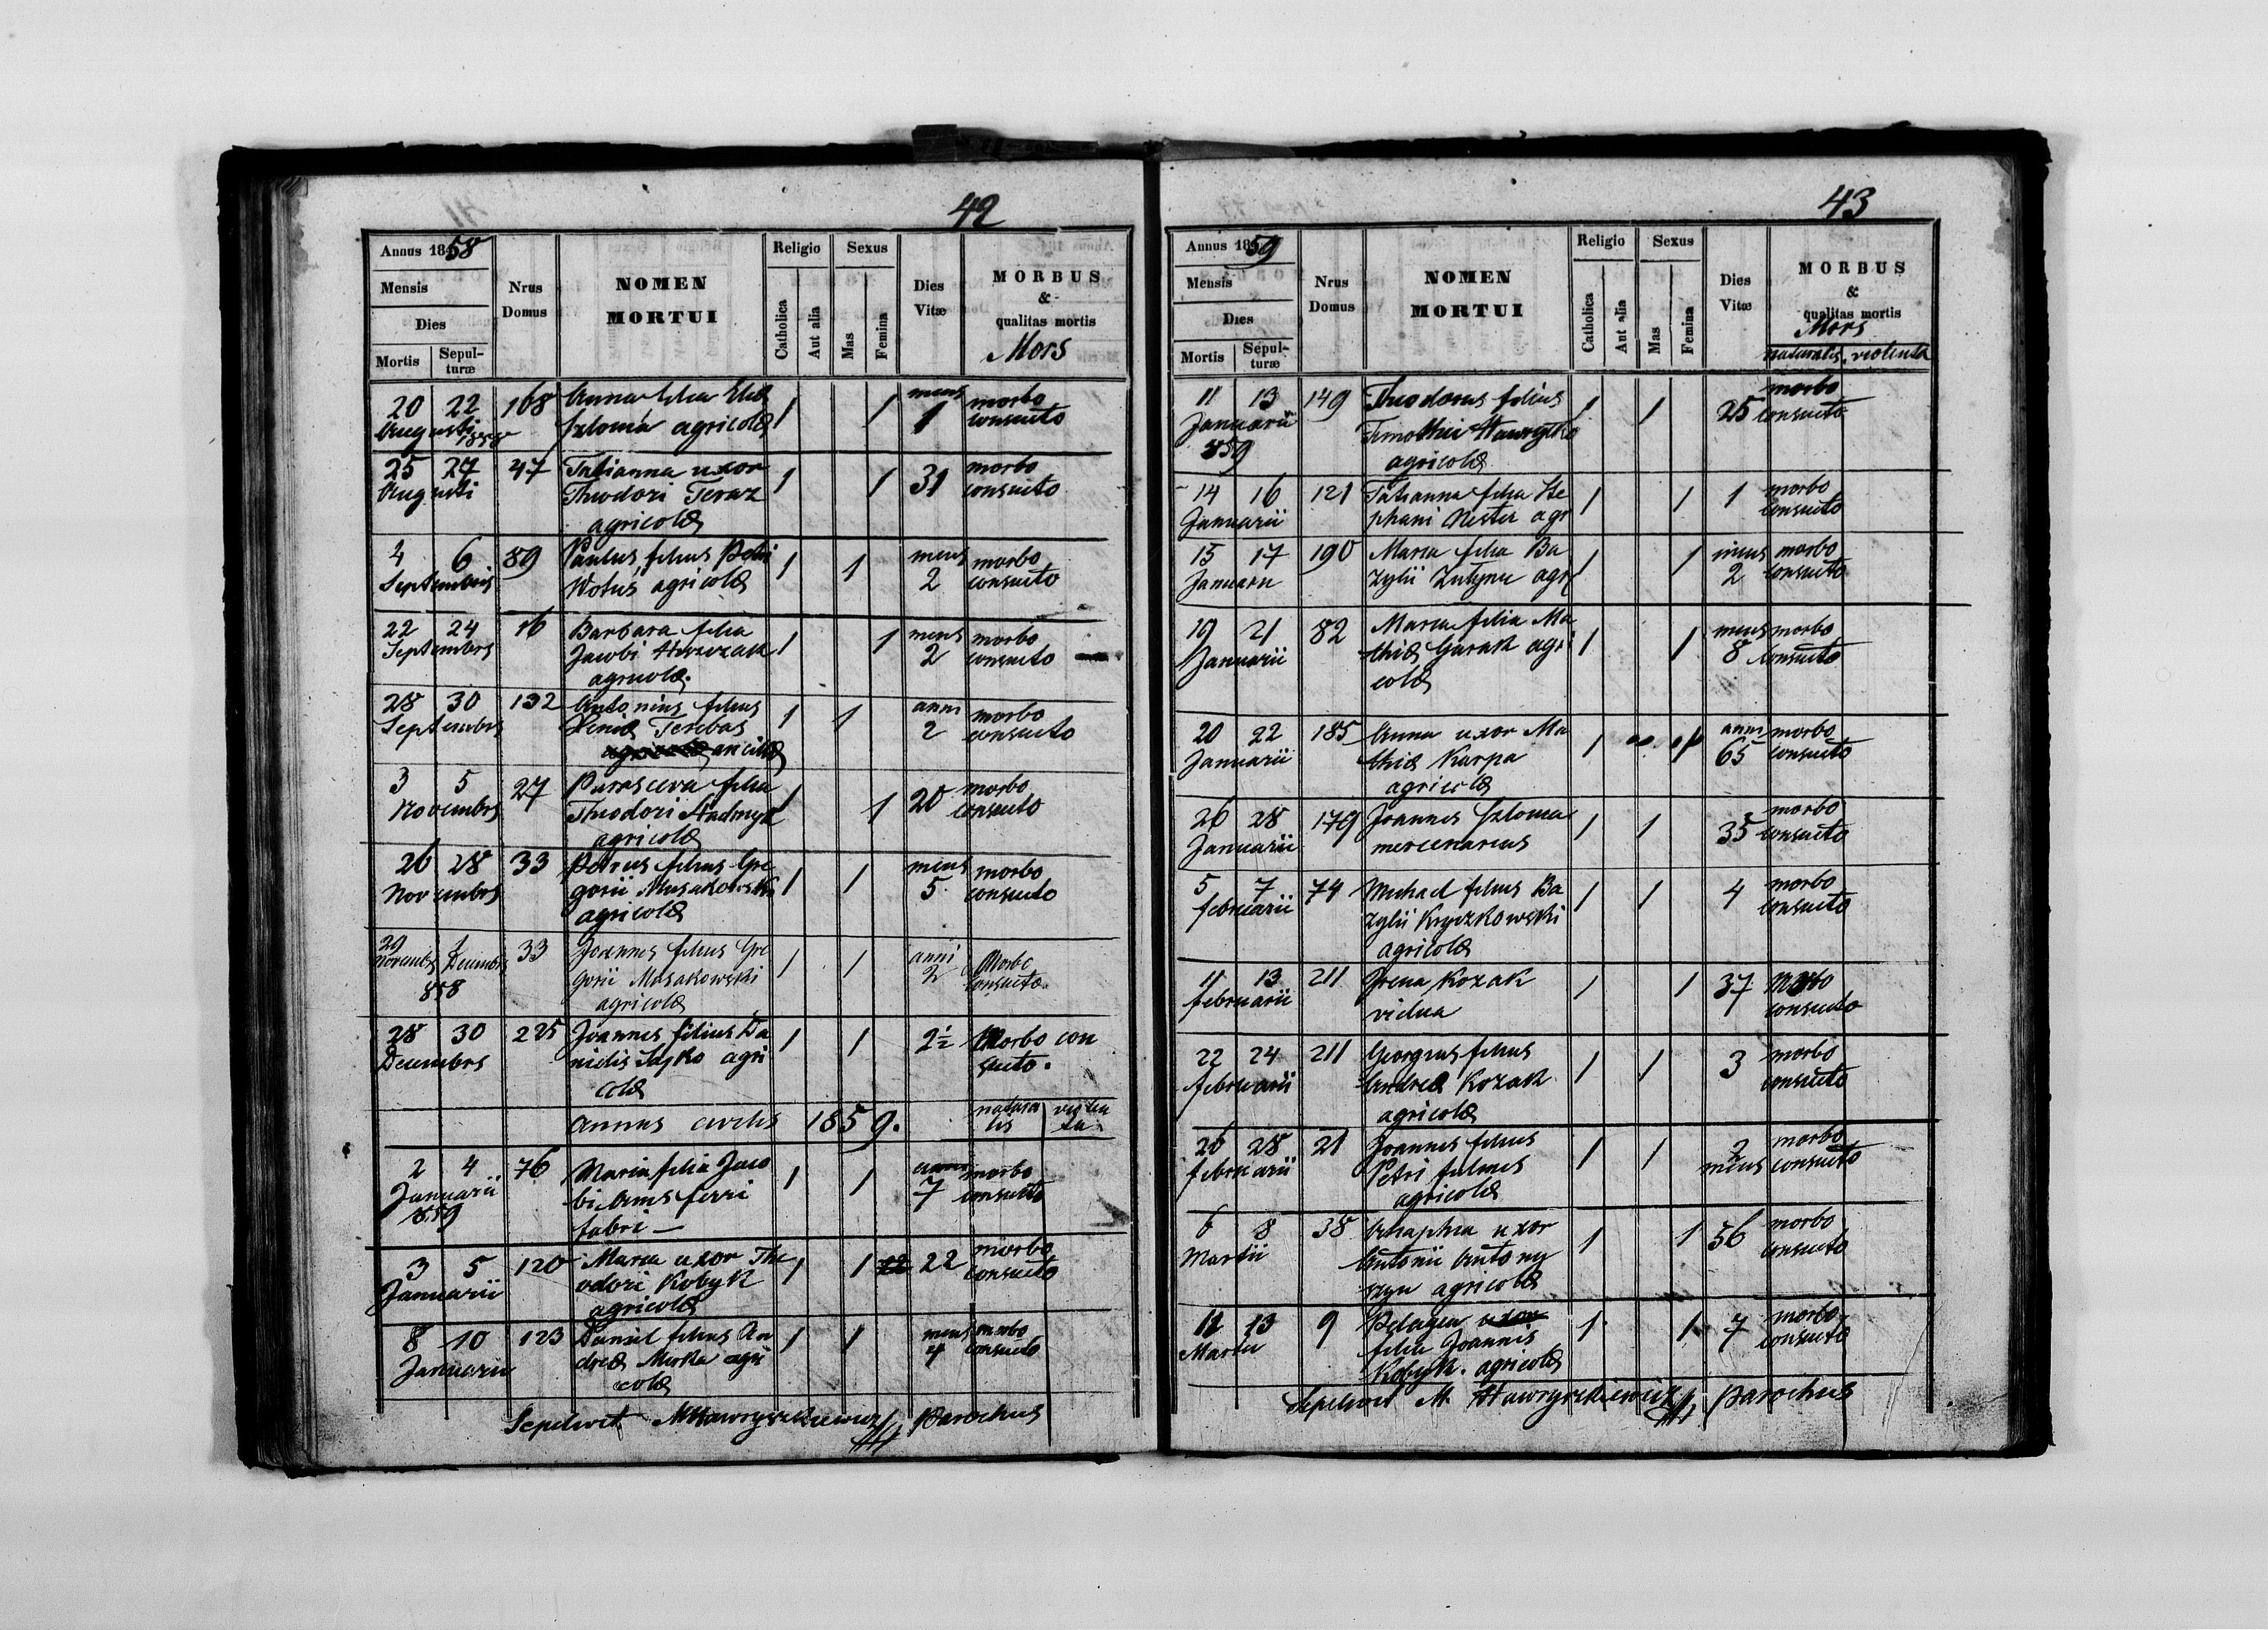 42
Annus 1858
Mensis
Dies
Mortis Sepulturæ
Nrus Domus
NOMEN MORTUI
Religio
Catholica
Aut alia
Sexus
Mas
Femina
Dies Vitæ
MORBUS
&
qualitas mortis
Mors
20 22 168 Anna filia Eliæ 1 1 mens morbo
Augusti 1858 Szloma agricolæ 1 consueto
25 27 47 Tatianna uxor 1 1 31 morbo
Augusti Theodori Teraz consueto
agricolæ
4 6 89 Paulus filius Petri 1 1 mens morbo
Septembris Wotus agricolæ 2 consueto
22 24 16 Barbara filia 1 1 mens morbo
Septembrs Jacobi 2 consueto
agricolæ.
28 30 132 Antonius filius 1 1 anni morbo
Septembrs Xeniæ Terebas 2 consueto
agricolæ ancillæ
3 5 27 Parasceva filia 1 1 20 morbo
Novembrs Theodori consueto
agricolæ
26 28 33 Petrus filius Gre 1 1 mens morbo
Novembrs gorii Masakowski 5 consueto
agricolæ
29 1 33 Joannes filius Gre 1 1 anni Morbo
Novembrs Decembrs gorii Masakowski 2 consueto
858 agricolæ
28 30 225 Joannes filius Da 1 1 2½ Morbo con
Decembrs nielis Sapko agri sueto.
colæ
annus civilis 1859. natura violen
lis ta
2 4 76 Maria filia Jaco 1 1 anni morbo
Januarii bi ferri 7 consueto
859 fabri —
3 5 120 Maria uxor The 1 1 22 22 morbo
Januarii odori Kobyk consueto
agricolæ
8 10 123 Daniel filius An 1 1 mens morbo
Januarii dreæ Murka agri 4 consueto
colæ
Sepelivit M Hawryszkiewicz Parochus
43
Annus 1859
Mensis
Dies
Mortis Sepulturæ
Nrus Domus
NOMEN MORTUI
Religio
Catholica
Aut alia
Sexus
Mas
Femina
Dies Vitæ
MORBUS
&
qualitas mortis
Mors
naturalis violenta
11 13 149 Theodorus filius 1 1 25 morbo
Januarii Timothei Hawrylko consueto
859 agricolæ
14 16 121 Tatianna filia Ste 1 1 1 morbo
Januarii phani Nester agr consueto
15 17 190 Maria filia Ba 1 1 mens morbo
Januarii zylii agr 2 consueto
19 21 82 Maria filia Ma 1 1 mens morbo
Januarii thiæ Garak agri 8 consueto
colæ
20 22 185 Anna uxor Ma 1 1 anni morbo
Januarii thiæ Karpa 65 consueto
agricolæ
26 28 179 Joannes Szloma 1 1 35 morbo
Januarii mercenarius consueto
5 7 74 Michael filius Ba 1 1 4 morbo
februarii zylii Kryczkowski consueto
agricolæ
11 13 211 Irena Kozak 1 1 37 Morbo
februarii vidua consueto
22 24 211 Georgius filius 1 1 3 morbo
februarii Andreæ Kozak consueto
agricolæ
26 28 21 Joannes filius 1 1 2 morbo
februarii Petri mens consueto
agricolæ
6 8 38 Ahaphia uxor 1 1 56 morbo
Martii Antonii Antony consueto
szyn agricolæ
12 13 9 Pelagia uxor 1 1 7 morbo
Martii filia Joannis consueto
Kobyk. agricolæ
Sepelivit M. Hawryszkiewicz Parochus